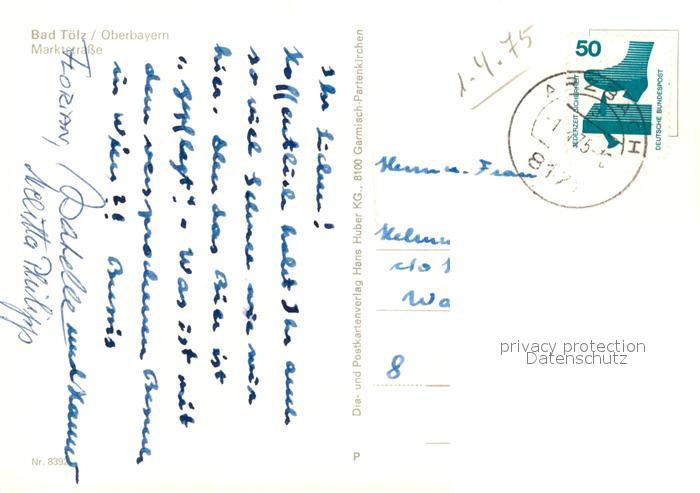 Bad Tölz / Oberbayern
Marktstraße
Ihr Lieben!
Hoffentlich habt Ihr auch
so viel Schnee wie wir
hier. Denn das Bier ist
"gepflegt"! - Was ist mit
dem versprochenen Besuch
in Wien?!
FLORIAN,
und
Melitta Philipp
Nr. 8392
Dia- und Postkartenverlag Hans Huber KG., 8100 Garmisch-Partenkirchen
P
1.4.75
50
JEDERZEIT SICHERHEIT
DEUTSCHE BUNDESPOST
Herrn u. Frau
c/o
8
privacy protection
Datenschutz